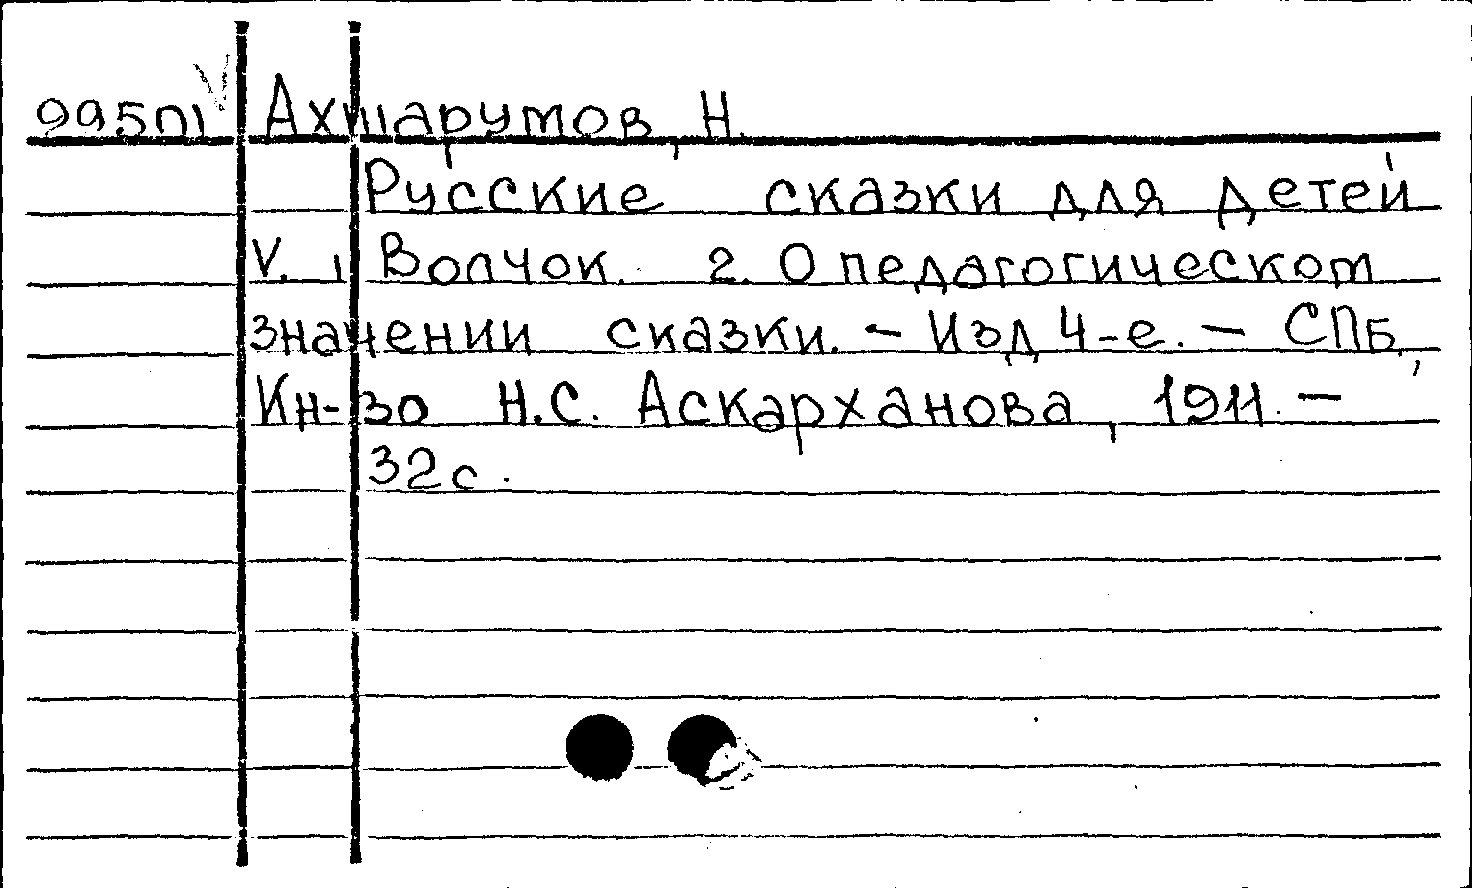 99501 Ахшарумов, Н.
Русские сказки для детей
V. 1 Волчок. 2. О педагогическом
значении сказки. – Изд 4-е. – СПБ,
Кн-во Н.С. Аскарханова, 1911. –
32 с.